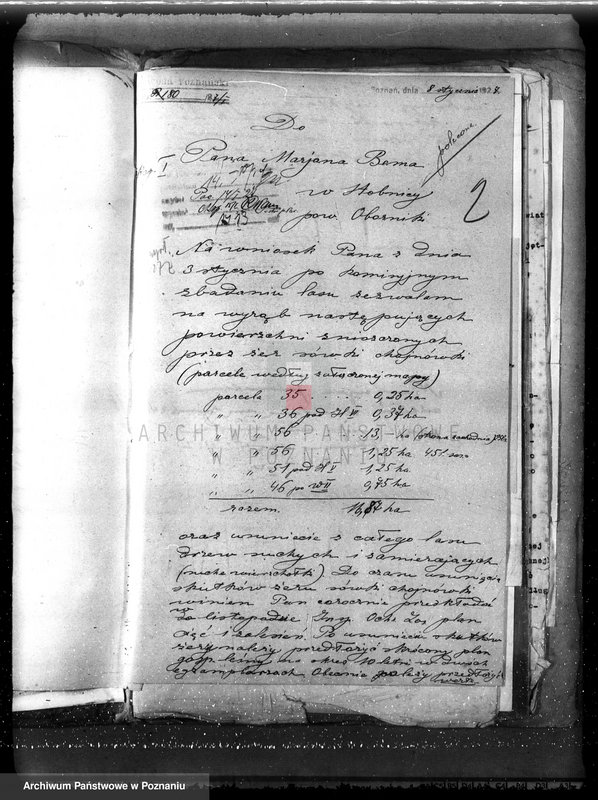 Poznań, dnia 8 stycznia 1927.
R/80
Do
polecone.
Pana Marjana Bema
w Stobnicy
pow. Oborniki
2
Na wniosek Pana z dnia
3 stycznia po komisyjnym
zbadaniu lasu zezwalam
na wyrąb następujących
powierzchni zniszczonych
przez żer sówki chojnówki
(parcele według załączonej mapy)
parcela 35 . . . . 0,25 ha
" " 36 pod H VI 0,37 ha
" " 56 13, ha
" " 56 1,25 ha
" " 51 pod H V 1,25 ha
" " 46 po w II 0,75 ha
razem 16,87 ha
oraz usunięcie z całego lasu
drzew suchych i zamierających
(suche wierzchołki) Do czasu usunięcia
skutków żeru sówki chojnówki
winien Pan corocznie przedkładać
w listopadzie Insp. Och. Las. plan
cięć i zalesień. Po usunięciu skutków
żeru należy przedłożyć skrócony plan
gosp. leśny na okres 10 letni w dwóch
egzemplarzach Obecnie należy przedłożyć
ARCHIWUM PAŃSTWOWE
W POZNANIU
Archiwum Państwowe w Poznaniu